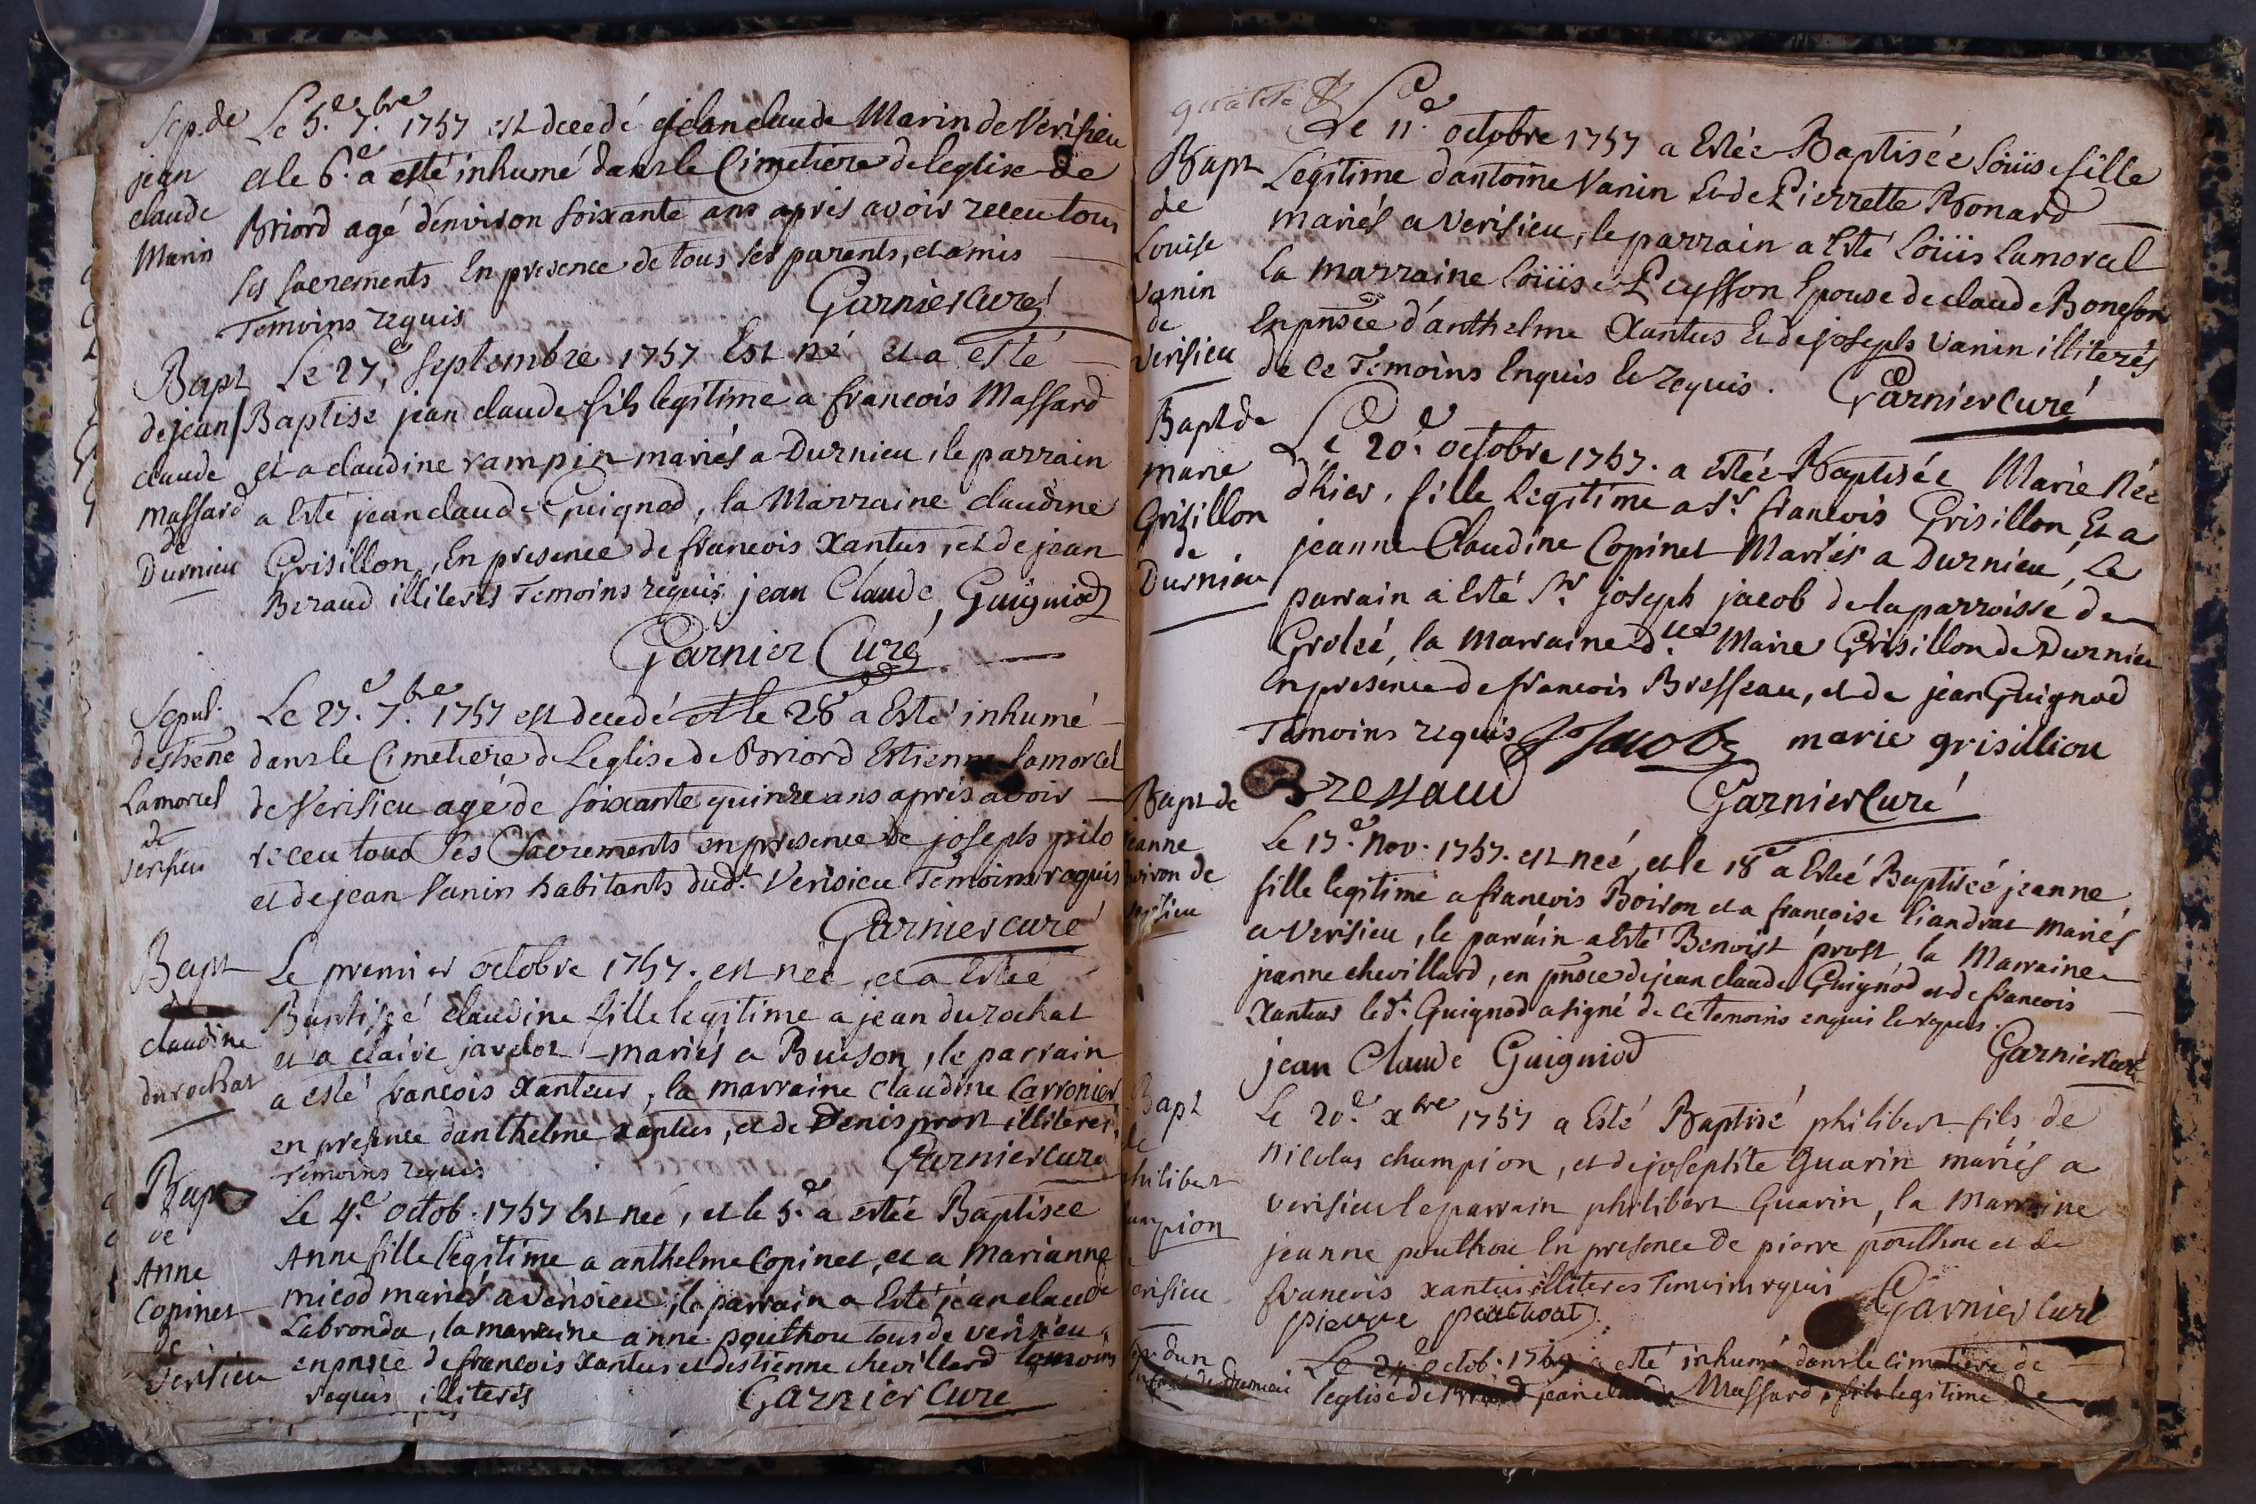 Sep. de
jean
claude
Marin
Le 5.e 7.bre 1757 est decedé jean claude Marin de Verisieu
et le 6.e a esté inhumé dans le Cimetiere de leglise de
Briord agé d'environ soixante ans aprés avoir receu tous
ses sacrements En presence de tous ses parents, et amis
Temoins requis
Garnier curé
Bapt
de jean
claude
Massard
de
Durnieu
Le 27.e septembre 1757 Est né et a esté
Baptisé jean claude fils legitime a francois Massard
et a claudine rampin mariés a Durnieu, le parrain
a Esté jean claude Guignod, la Marraine claudine
Grisillon, En presence de francois Xantus, et de jean
Beraud illiterés Temoins requis jean Claude Guigniod
Garnier Curé
Sepul.
destiene
Lamorcel
de
Verisieu
Le 27.e 7.bre 1757 est decedé et le 28e a Esté inhumé
dans le Cimetiere de Leglise de Briord Estienne Lamorcel
de Verisieu agé de soixante quinze ans aprés avoir
receu tous ses Sacrements en presence de joseph pilo
et de jean Vanin habitants dudt. Verisieu Temoins requis
Garnier curé
Bapt
de
claudine
durochat
Le premier octobre 1757. est neé, et a Esteé
Baptiseé claudine fille legitime a jean durochat
et a claire javelot mariés a Buison, le parrain
a esté francois Xanteus, la marraine claudine Carronier
en presence danthelme Xantus, et de Denis prost illiterés
Temoins requis
Garnier curé
Bapt
de
Anne
Copinet
de
Verisieu
Le 4.e octob. 1757 Est neé, et le 5.e a esteé Baptisee
Anne fille legitime a anthelme Copinet, et a Marianne
micod mariés a Verisieu, le parrain a Esté jean claude
Labronda, la marraine anne pouthou tous de verisieu,
en pnsce de francois Xantus et destienne chevillard temoins
requis illiterés
Garnier curé
Bapt
de
Louise
Vanin
de
Verisieu
Le 11.e octobre 1757 a Esteé Baptiseé Loüise fille
Legitime d'antoine Vanin Et de Pierrette Bonard
mariés a Verisieu, le parrain a Esté Loüis Lamorcel
La marraine Loüise Peysson Epouse de claude Bonefon
En pnsce d'anthelme Xantus Et de joseph Vanin illiterés
de ce Temoins Enquis Et requis.
Garnier curé
Bapt de
marie
Grisillon
de
Durnieu
Le 20.e octobre 1757. a esteé Baptiseé Marie Née
d'hier, fille Legitime a Sr. francois Grisillon Et a
jeanne Claudine Copinet Mariés a Durnieu, Le
parrain a Esté Sr. joseph jacob de la parroisse de
Groleé, la Marraine d.lle Marie Grisillon de Durnieu
En presence de francois Bresseau, et de jean Guignod
Temoins requis
J Jacob marie grisilliou
Bressaud
Garnier Curé
Bapt de
jeanne
Boiron de
Verisieu
Le 17.e Nov. 1757. est neé, et le 18e a Esteé Baptiseé jeanne
fille legitime a francois Boiron et a françoise liandrat mariés
a Verisieu, le parrain a Esté Benoist prost, la Marraine
jeanne chevillard, en pnsce de jean claude Guignod et de francois
Xanteus ledt. Guignod a signé de ce temoins enquis Et requis.
jean Claude Guigniod
Garnier curé
Bapt
de
philibert
champion
de
Verisieu
Le 20.e xbre 1757 a Esté Baptisé philibert fils de
Nicolas champion, et de josephte Guarin mariés a
verisieu le parrain philibert Guarin, la Marraine
jeanne pouthou En presence de pierre pouthou et de
francois xantus illiteres Temoins requis
pierre pouthout
Garnier curé
Sep. dun
enfant de Durnieu
Le 24.e octob. 1757 a esté inhumé dans le cimetiere de
l'eglise de Briord jean claude Massard, fils legitime de